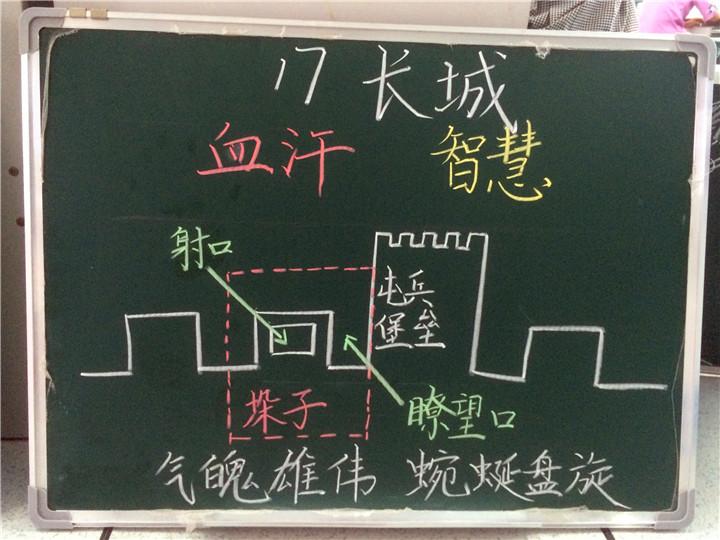 17 长城
血汗 智慧
射口
屯兵
堡垒
垛子
瞭望口
气魄雄伟 蜿蜒盘旋